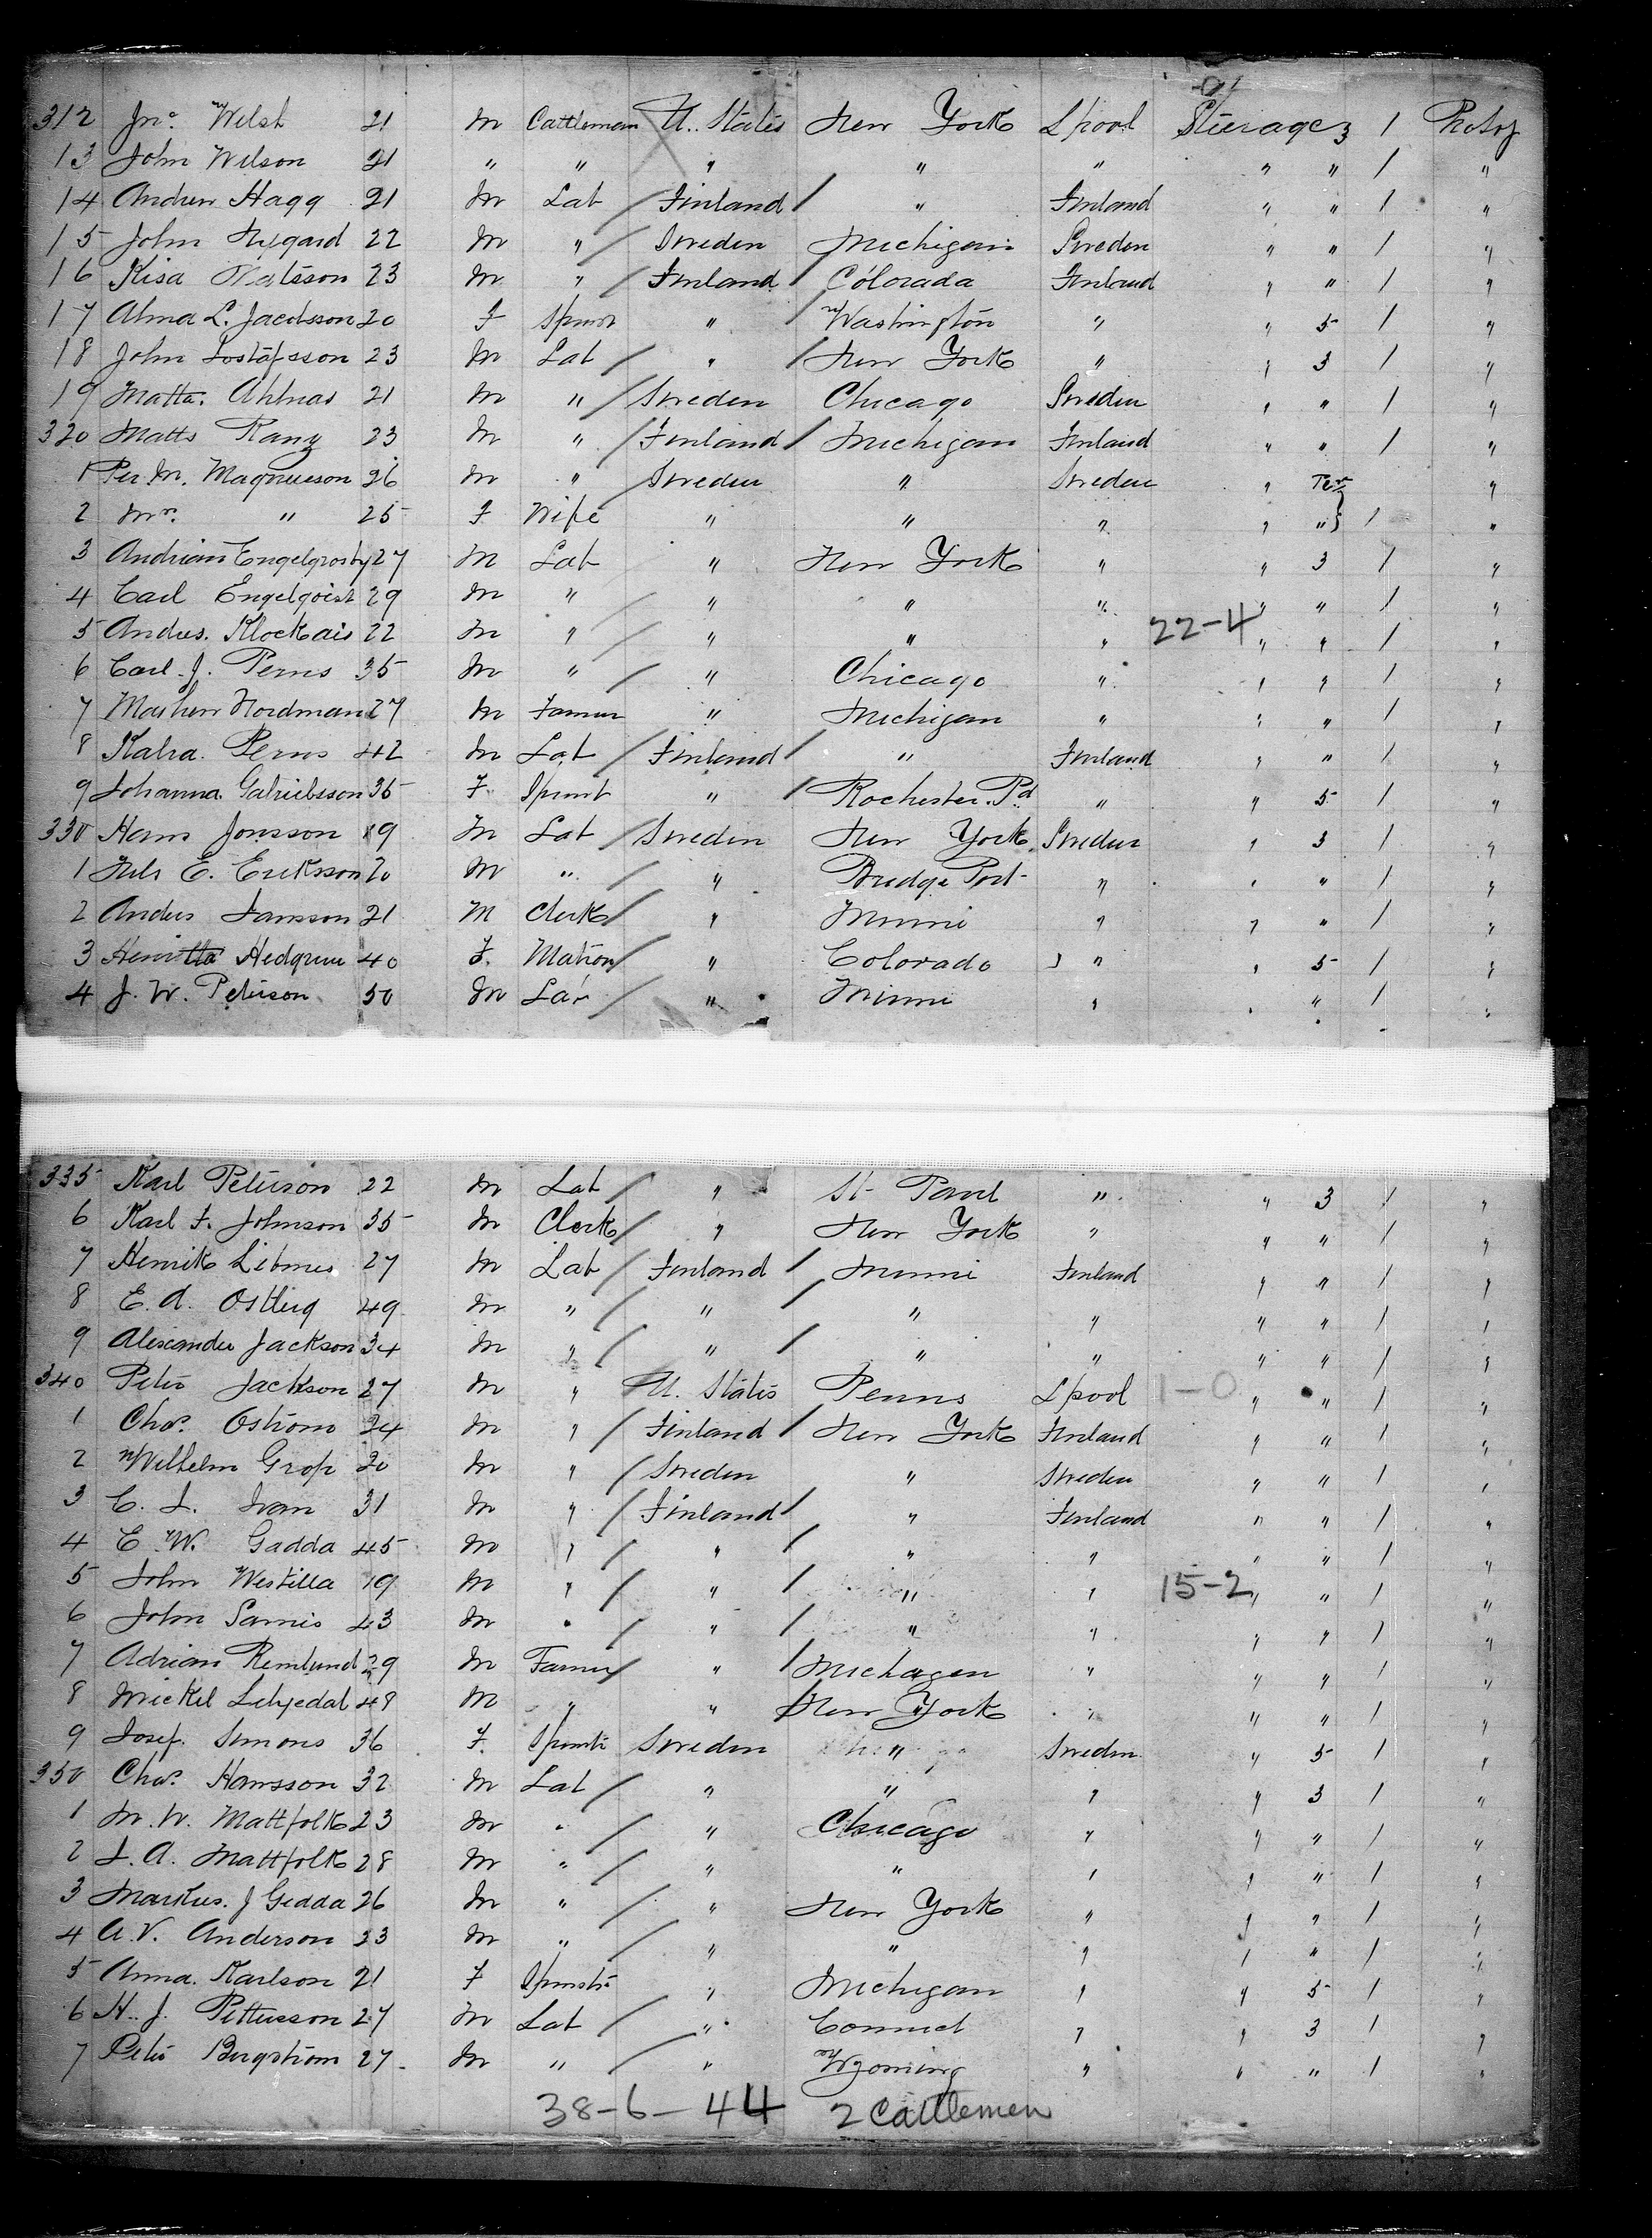 312 Jno. Welsh 21 m Cattleman U. States New York Lpool Steerage 3 1 Protog
13 John Wilson 21 " " " " " " " 1 "
14 Andrew Hagg 21 m Lab / Finland / " Finland " " 1 "
15 John Nygard 22 m " / Sweden Michigan Sweden " " 1 "
16 Kisa Matsson 23 m " / Finland / Colorada Finland " " 1 "
17 Alma L. Jacobsson 20 F Spinst " / Washington " " 5 1 "
18 John Gostafsson 23 m Lab / " / New York " " 3 1 "
19 Matts. Ahlnas 21 m " / Sweden Chicago Sweden " " 1 "
320 Matts Rang 23 m " / Finland / Michigan Finland " " 1 "
1 Per M. Magnusson 26 m " / Sweden " Sweden " "
2 Mrs. " 25 F Wife " " " " " } 1 "
3 Andrian 27 m Lab " New York " " 3 1 "
4 Carl Engelqvist 29 m " / " " " " " 1 "
5 Andus. Klockais 22 m " / " " " 22-4 " " 1 "
6 Carl. J. Perns 35 m " / " Chicago " " " 1 "
7 Nordman 27 m Farmer " Michigan " " " 1 "
8 Perns 42 m Lab / Finland / " Finland " " 1 "
9 Johanna Gabrielsson 35 F. Spinst " / Rochester. Pa " " 5 1 "
330 Hans Jonsson 19 m Lab / Sweden New York Sweden " 3 1 "
1 Nels E. Eriksson 20 m " / " Bridge Port " " " 1 "
2 Anders Jansson 21 m Clerk / " Minni " " " 1 "
3 Hedgren 40 F. Matron / " Colorado " " 5 1 "
4 J. W. Peterson 50 m Lab / " Minni " " " 1 "
335 Karl Peterson 22 m Lab / " St Paul " " 3 1 "
6 Karl F. Johnson 35 m Clerk / " New York " " " 1 "
7 Henrik 27 m Lab / Finland / Minni Finland " " 1 "
8 E. A. Ostberg 49 m " / " / " " " " 1 "
9 Alexander Jackson 34 m " / " / " " " " 1 "
340 Peter Jackson 27 m " U. States Penns Lpool 1-0 " " 1 "
1 Chas. Ostrom 24 m " / Finland / New York Finland " " 1 "
2 Wilhelm Grop 20 m " / Sweden " Sweden " " 1 "
3 31 m " / Finland / " Finland " " 1 "
4 E. W. Gadda 45 m " / " / " " " " 1 "
5 John Westilla 19 m " / " / " " 15-2 " " 1 "
6 John 43 m " / " / " " " " 1 "
7 Adrian Remlund 29 m Farmer / " / Michagen " " " 1 "
8 Mickel 48 m " " / New York " " " 1 "
9 Josef. Simons 36 F. Spinst Sweden " Sweden " 5 1 "
350 Chas. Hansson 32 m Lab / " " " " 3 1 "
1 M. W. Mattfolk 23 m " / " Chicago " " " 1 "
2 J. A. Mattfolk 28 m " / " " " " " 1 "
3 Markus. J Gedda 26 m " / " New York " " " 1 "
4 A. V. Anderson 23 m " / " " " " " 1 "
5 Anna. Karlson 21 F Spinst " Michigan " " 5 1 "
6 H. J. Pettersson 27 m Lab / " Connect " " 3 1 "
7 Peter Bergstrom 27 m " / " Wyoming " " " 1 "
38-6-44 2 Cattlemen